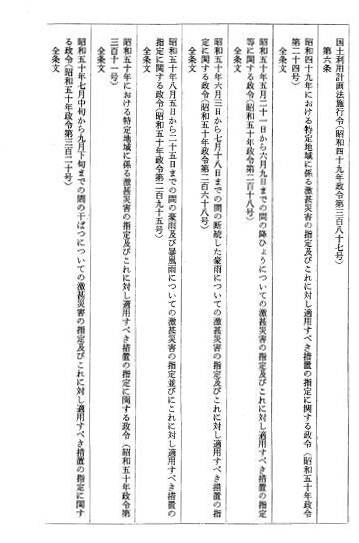 国土利用計画法施行令（昭和四十九年政令第三百八十七号）
第六条
昭和四十九年における特定地域に係る激甚災害の指定及びこれに対し適用すべき措置の指定に関する政令（昭和五十年政令
第二十四号）
全条文
昭和五十年五月二十一日から六月九日までの間の降ひょうについての激甚災害の指定及びこれに対し適用すべき措置の指定
等に関する政令（昭和五十年政令第二百十八号）
全条文
昭和五十年六月三日から七月十八日までの間の断続した豪雨についての激甚災害の指定及びこれに対し適用すべき措置の指
定に関する政令（昭和五十年政令第二百六十八号）
全条文
昭和五十年八月五日から二十五日までの間の豪雨及び暴風雨についての激甚災害の指定並びにこれに対し適用すべき措置の
指定に関する政令（昭和五十年政令第二百九十五号）
全条文
昭和五十年における特定地域に係る激甚災害の指定及びこれに対し適用すべき措置の指定に関する政令（昭和五十年政令第
三百十一号）
全条文
昭和五十年七月中旬から九月下旬までの間の干ばつについての激甚災害の指定及びこれに対し適用すべき措置の指定に関す
る政令（昭和五十年政令第三百二十号）
全条文